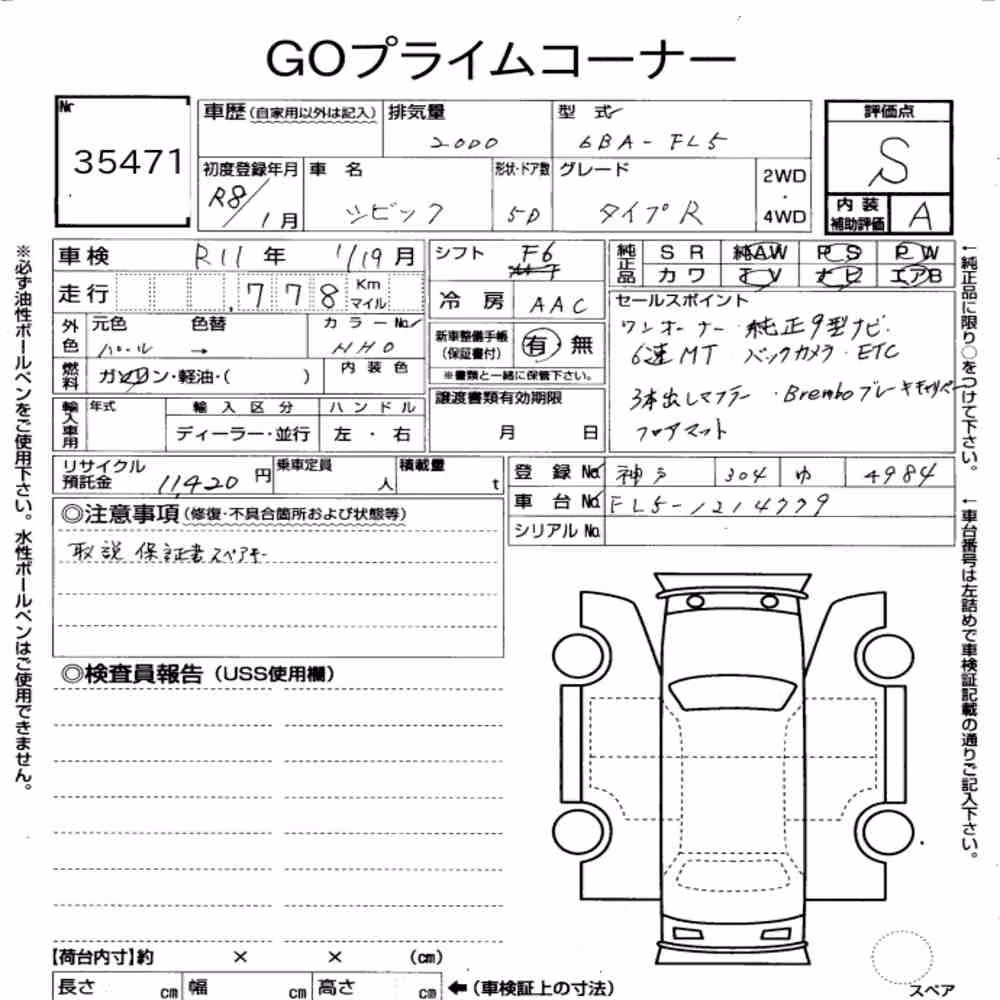 GOプライムコーナー
Nr
35471
車歴(自家用以外は記入) 排気量 型式
2000 6BA-FL5
初度登録年月 車名 形状・ドア数 グレード 2WD・4WD
R8/1月 シビック 5D タイプR
評価点
S
内装補助評価 A
車検 R11年 1/19月
走行 ,778 Km マイル
外色 元色 色替 カラーNo.
パール → NHO
燃料 ガソリン・軽油・( ) 内装色
輸入車用 年式 輸入区分 ハンドル
ディーラー・並行 左・右
シフト F6
冷房 AAC
新車整備手帳(保証書付) 有 無
※書類と一緒に保管下さい。
譲渡書類有効期限
月 日
純正品 SR 純AW PS PW
カワ TV ナビ エアB
セールスポイント
ワンオーナー・純正9型ナビ・
6速MT バックカメラ・ETC
3本出しマフラー・Bremboブレーキキャリパー
フロアマット
リサイクル預託金 11,420円 乗車定員 人 積載量 t
登録No. 神戸 304 ゆ 4984
車台No. FL5-1214779
シリアルNo.
◎注意事項(修復・不具合箇所および状態等)
取説 保証書 スペアキー
◎検査員報告(USS使用欄)
【荷台内寸】約 × × (cm)
長さ cm 幅 cm 高さ cm ←(車検証上の寸法)
スペア
※必ず油性ボールペンをご使用下さい。水性ボールペンはご使用できません。
←純正品に限り○をつけて下さい。
←車台番号は左詰めで車検証記載の通りご記入下さい。